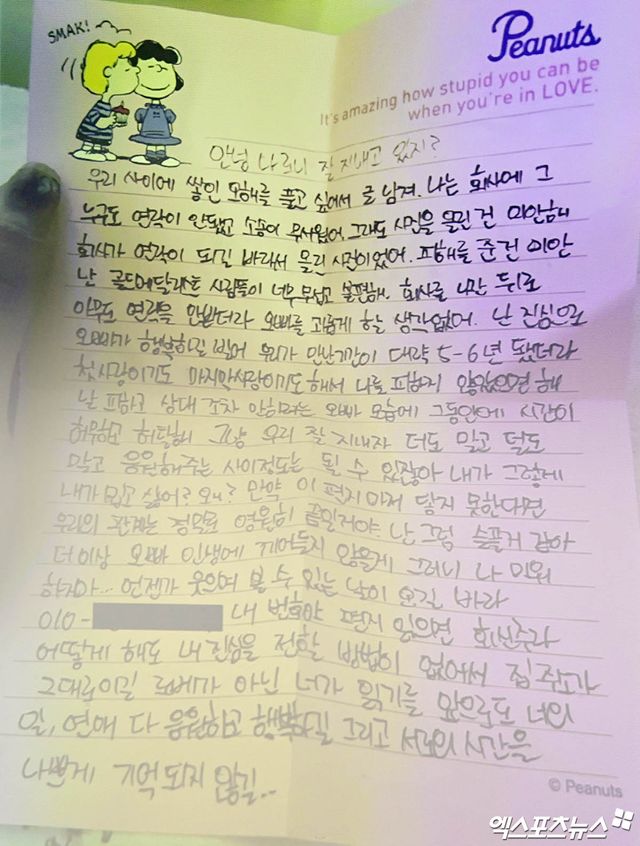 SMAK!
Peanuts
It's amazing how stupid you can be
when you're in LOVE.
안녕 나 잘지내고 있지?
우리 사이에 쌓인 오해를 풀고 싶어서 글 남겨. 나는 회사에 그
누구도 연락이 안됐고 소송이 무서웠어. 그래도 사진을 올린건 미안해
회사가 연락이 되길 바라서 올린 사진이었어. 피해를 준건 미안
난 골드메달리스트 사람들이 너무 무섭고 불편해. 회사를 나간 뒤로
아무도 연락을 안받더라 오빠를 괴롭게 할 생각없어. 난 진심으로
오빠가 행복하길 빌어 우리가 만난기간이 대략 5-6년 됐더라
첫사랑이기도 마지막사랑이기도 해서 나를 피하지 않았으면 해
날 피하고 상대 조차 안하려는 오빠 모습에 그동안에 시간이
허무하고 허탈해 그냥 우리 잘 지내자 더도 말고 덜도
말고 응원해주는 사이정도는 될 수 있잖아 내가 그렇게
내가 밉고 싫어? 왜? 만약 이 편지마저 닿지 못한다면
우리의 관계는 정말로 영원히 끝일거야. 난 그럼 슬플거 같아
더이상 오빠 인생에 끼어들지 않을게 그러니 나 미워
하지마... 언젠가 웃으며 볼 수 있는 날이 오길 바라
010- 내 번호야 편지 읽으면 회신주라
어떻게 해도 내 진심을 전할 방법이 없어서 집주소가
그대로이길 로베가 아닌 너가 읽기를 앞으로도 너의
일, 연애 다 응원하고 행복하길 그리고 서로의 시간을
나쁘게 기억되지 않길..
© Peanuts
엑스포츠뉴스